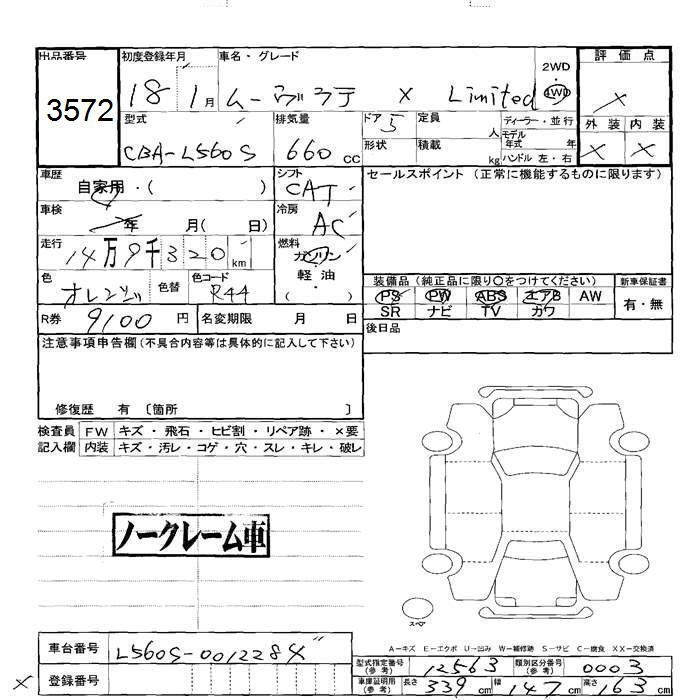 出品番号 初度登録年月 車名・グレード 2WD 評価点
3572 18 1月 ムーヴラテ X Limited 4WD ×
型式 排気量 ドア 5 定員 人 ディーラー・並行 外装 内装
CBA-L560S 660 cc 形状 積載 kg モデル年式 年 × ×
ハンドル 左・右
車歴 シフト セールスポイント (正常に機能するものに限ります)
自家用・( ) CAT
車検 年 月( 日) 冷房 AC
走行 14万9千320km 燃料 ガソリン
軽・油
( )
色 オレンジ 色替 色コード R44
装備品 (純正品に限り○をつけてください) 新車保証書
PS PW ABS エアB AW 有・無
SR ナビ TV カワ
R券 9100円 名変期限 月 日 後日品
注意事項申告欄 (不具合内容等は具体的に記入して下さい)
修復歴 有 〔箇所 〕
検査員 FW キズ・飛石・ヒビ割・リペア跡・×要
記入欄 内装 キズ・汚レ・コゲ・穴・スレ・キレ・破レ
ノークレーム車
スペア
A=キズ E=エクボ U=凹み W=補修跡 S=サビ C=腐食 XX=交換済
車台番号 L560S-0012284
型式指定番号(参考) 12563 類別区分番号(参考) 0003
× 登録番号
車庫証明用(参考) 長さ 339cm 幅 147cm 高さ 163cm